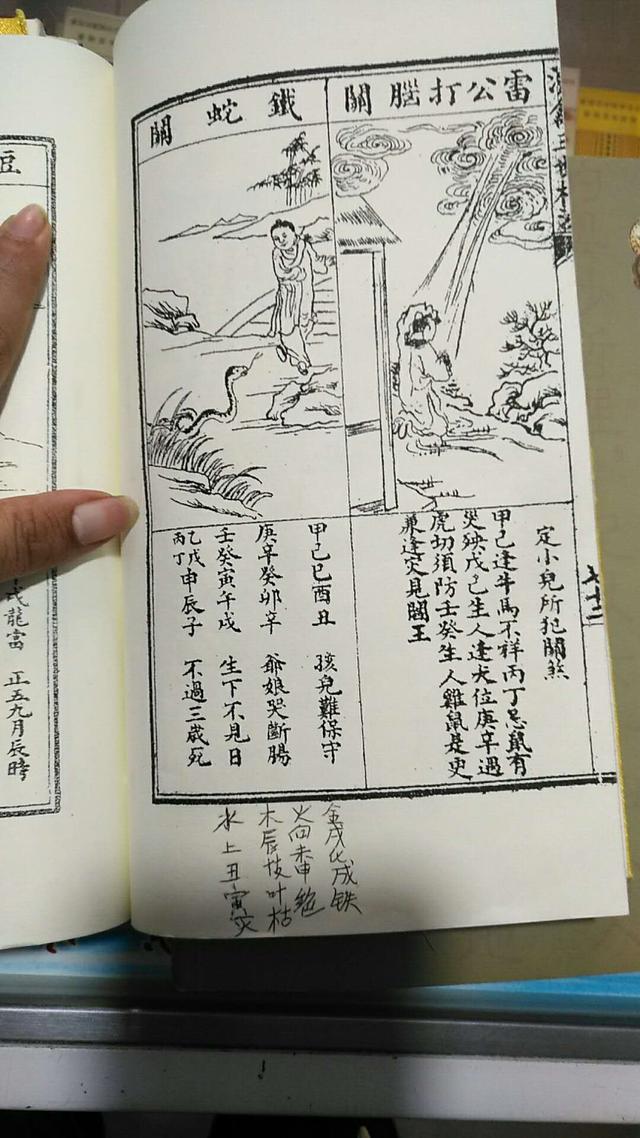 雷公打腦關
定小兒所犯關煞
甲己逢牛馬不祥丙丁忌鼠有
災殃戊己生人逢犬位庚辛遇
虎切須防壬癸生人雞鼠是更
兼逢災見閻王
鐵蛇關
甲己巳酉丑 孩兒難保守
庚辛癸卯辛 爺娘哭斷腸
壬癸寅午戌 生下不見日
乙戊丙丁申辰子 不過三歲死
金戌化成铁
火向未申絕
木辰枝叶枯
水上丑寅灾
龍當 正五九月辰時